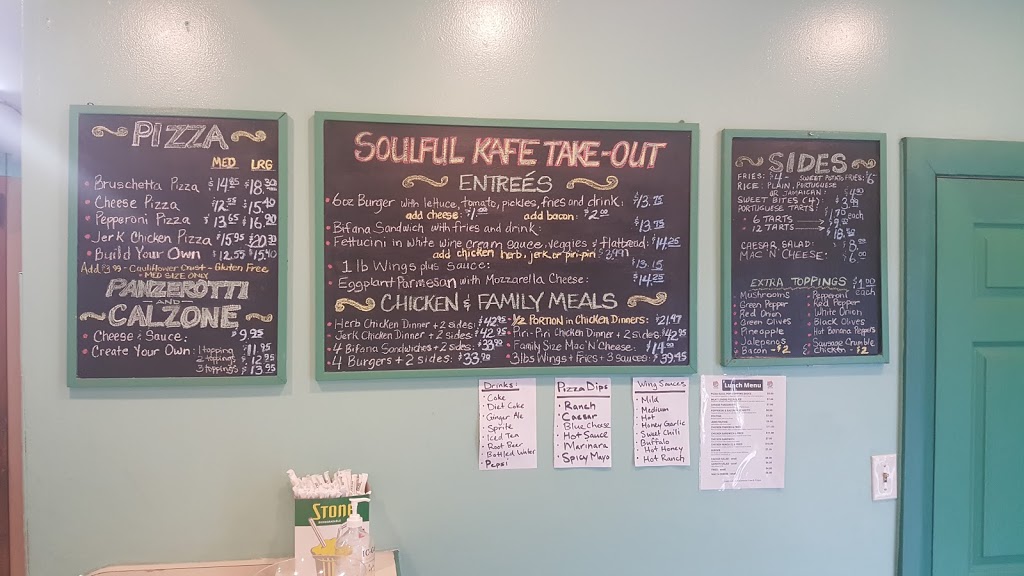 PIZZA
MED LRG
Bruschetta Pizza $14.85 $18.30
Cheese Pizza $12.55 $15.40
Pepperoni Pizza $13.65 $16.90
Jerk Chicken Pizza $15.95 $20.30
Build Your Own $12.55 $15.40
Add $3.99 - Cauliflower Crust - Gluten Free
- MED SIZE ONLY
PANZEROTTI
AND
CALZONE
Cheese & Sauce: $9.95
Create Your Own: 1 topping $11.95
2 toppings $12.95
3 toppings $13.95
SOULFUL KAFE TAKE-OUT
ENTREÉS
6oz Burger with lettuce, tomato, pickles, fries and drink: $13.75
add cheese: $1.00 add bacon: $2.00
Bifana Sandwich with fries and drink: $13.75
Fettucini in White wine cream sauce, veggies & flatbread: $14.25
add chicken herb, jerk or piri-piri
1 lb Wings plus Sauce: $13.15
Eggplant Parmesan with Mozzarella Cheese: $14.25
CHICKEN & FAMILY MEALS
Herb Chicken Dinner + 2 sides: $42.95
Jerk Chicken Dinner + 2 sides: $42.95
4 Bifana Sandwiches + 2 sides: $33.90
4 Burgers + 2 sides: $33.90
1/2 PORTION in CHICKEN DINNERS: $21.97
Piri-Piri Chicken Dinner + 2 sides: $42.95
Family Size Mac'N'Cheese: $14.00
3lbs Wings + Fries + 3 sauces: $39.45
SIDES
FRIES: $4 SWEET POTATO FRIES: $6
RICE: PLAIN, PORTUGUESE
OR JAMAICAN: $4.00
SWEET BITES (4): $3.99
PORTUGUESE TARTS: $1.75 each
6 TARTS $9.50
12 TARTS $18.50
CAESAR SALAD: $8.00
MAC'N CHEESE: $6.00
EXTRA TOPPINGS $1.00 each
Mushrooms
Green Pepper
Red Onion
Green Olives
Pineapple
Jalepenos
Bacon - $2
Pepperoni
Red Pepper
White Onion
Black Olives
Hot Banana Peppers
Sausage Crumble
Chicken - $2
Drinks:
Coke
Diet Coke
Ginger Ale
Sprite
Iced Tea
Root Beer
Bottled Water
Pepsi
Pizza Dips
Ranch
Caesar
Blue Cheese
Hot Sauce
Marinara
Spicy Mayo
Wing Sauces
Mild
Medium
Hot
Honey Garlic
Sweet Chili
Buffalo
Hot Honey
Hot Ranch
Lunch Menu
STONE